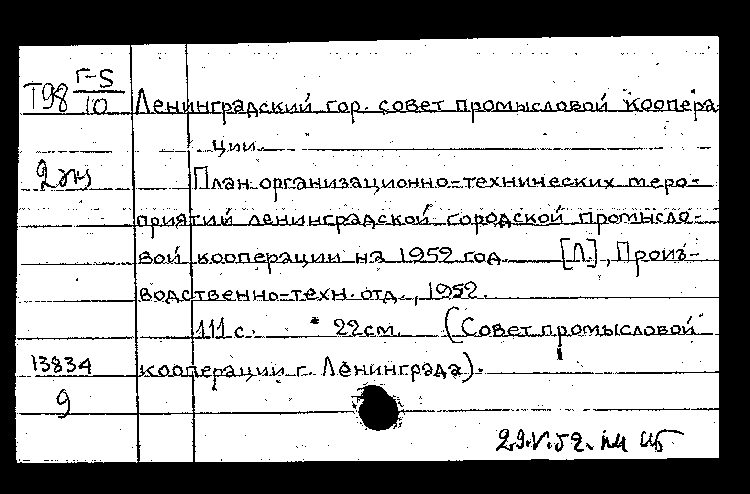 Т98 Г-5/10 Ленинградский гор. совет промысловой коопера
ции.
2 экз План организационно-технических меро-
приятий ленинградской городской промысло-
вой кооперации на 1952 год. [Л.], Произ-
водственно-техн. отд., 1952.
111 с. * 22см. (Совет промысловой
13834 кооперации г. Ленинграда).
9
29.V.52.